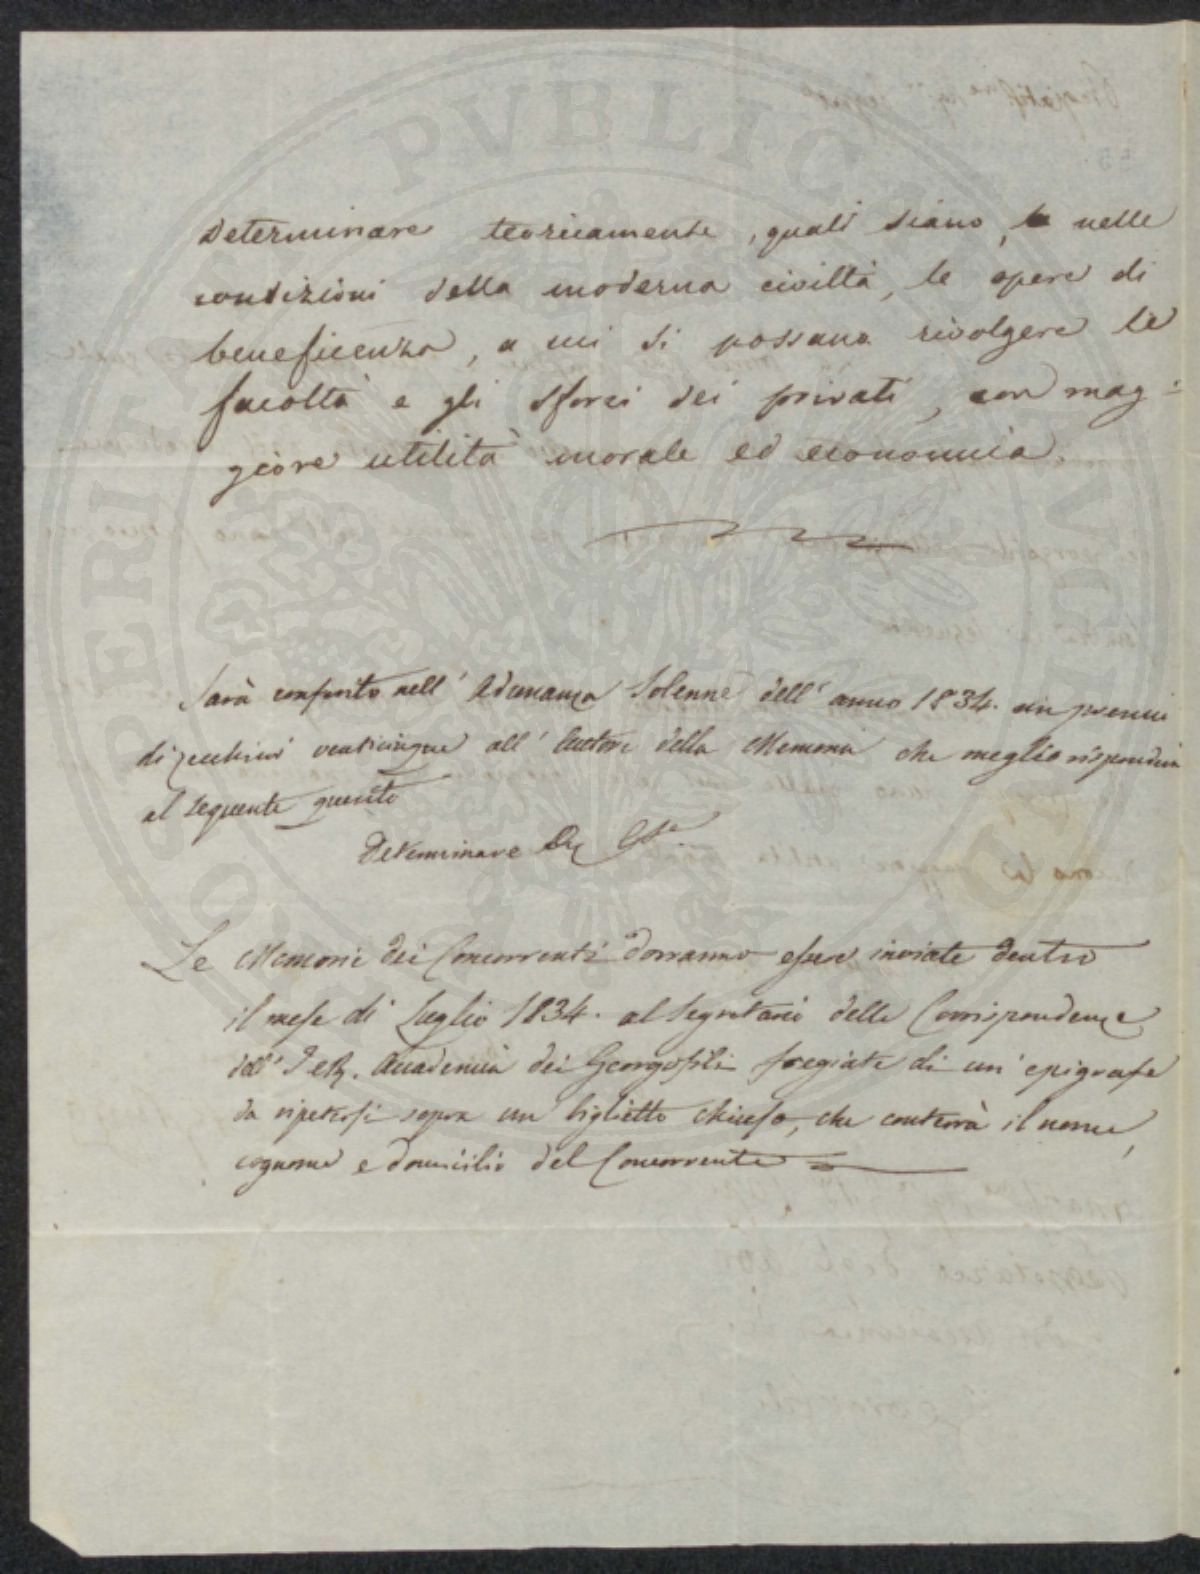 Determinare teoricamente, quali siano, nelle
condizioni della moderna civiltà, le opere di
beneficenza, a cui si possano rivolgere le
facoltà e gli sforzi dei privati, con mag-
giore utilità morale ed economica.
Sarà conferito nell' Adunanza Solenne dell' anno 1834. un premio
di zecchini venticinque all' Autore della Memoria che meglio risponderà
al seguente quesito
Determinare
Le Memorie dei Concorrenti dovranno esser inviate dentro
il mese di Luglio 1834. al Segretario delle Corrispondenze
dell' I e R. Accademia dei Georgofili fregiate di un' epigrafe
da ripetersi sopra un biglietto chiuso, che conterrà il nome,
cognome e domicilio del Concorrente